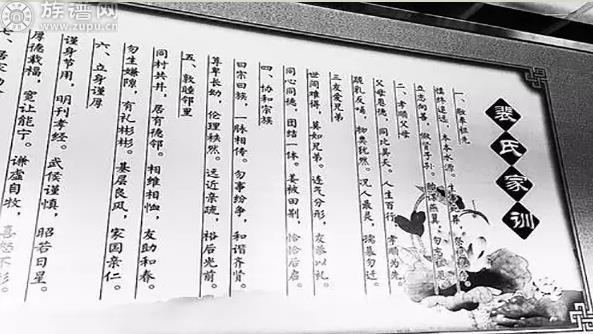 族谱网
www.zupu.cn
裴氏家训
一、敬奉祖先
慎终追远，木本水源。生
立志向善，做贤子孙。
二、孝顺父母
父母恩德，同比昊天。人生百行，孝顺为先。
跪乳反哺，物类犹然。况人最灵，孺慕勿迁。
三、友爱兄弟
世间难得，莫如兄弟。连气分形，友恭以礼。
同心同德，团结一体。姜被田荆，恰恰后启。
四、协和宗族
曰宗曰族，一脉相传。勿事纷争，和谐齐贤。
尊卑长幼，伦理秩然。远近亲疏，裕后光前。
五、敦睦邻里
同村共井，居有德邻。相维相恤，友助和春。
勿生嫌隙，有礼彬彬。基层良风，家国亲仁。
六、立身谨厚
谨身节用，明刊孝经。武侯谨慎，昭若日星。
厚德载福，宽让能宁。谦虚自牧，喜怒不形。
七、居家勤